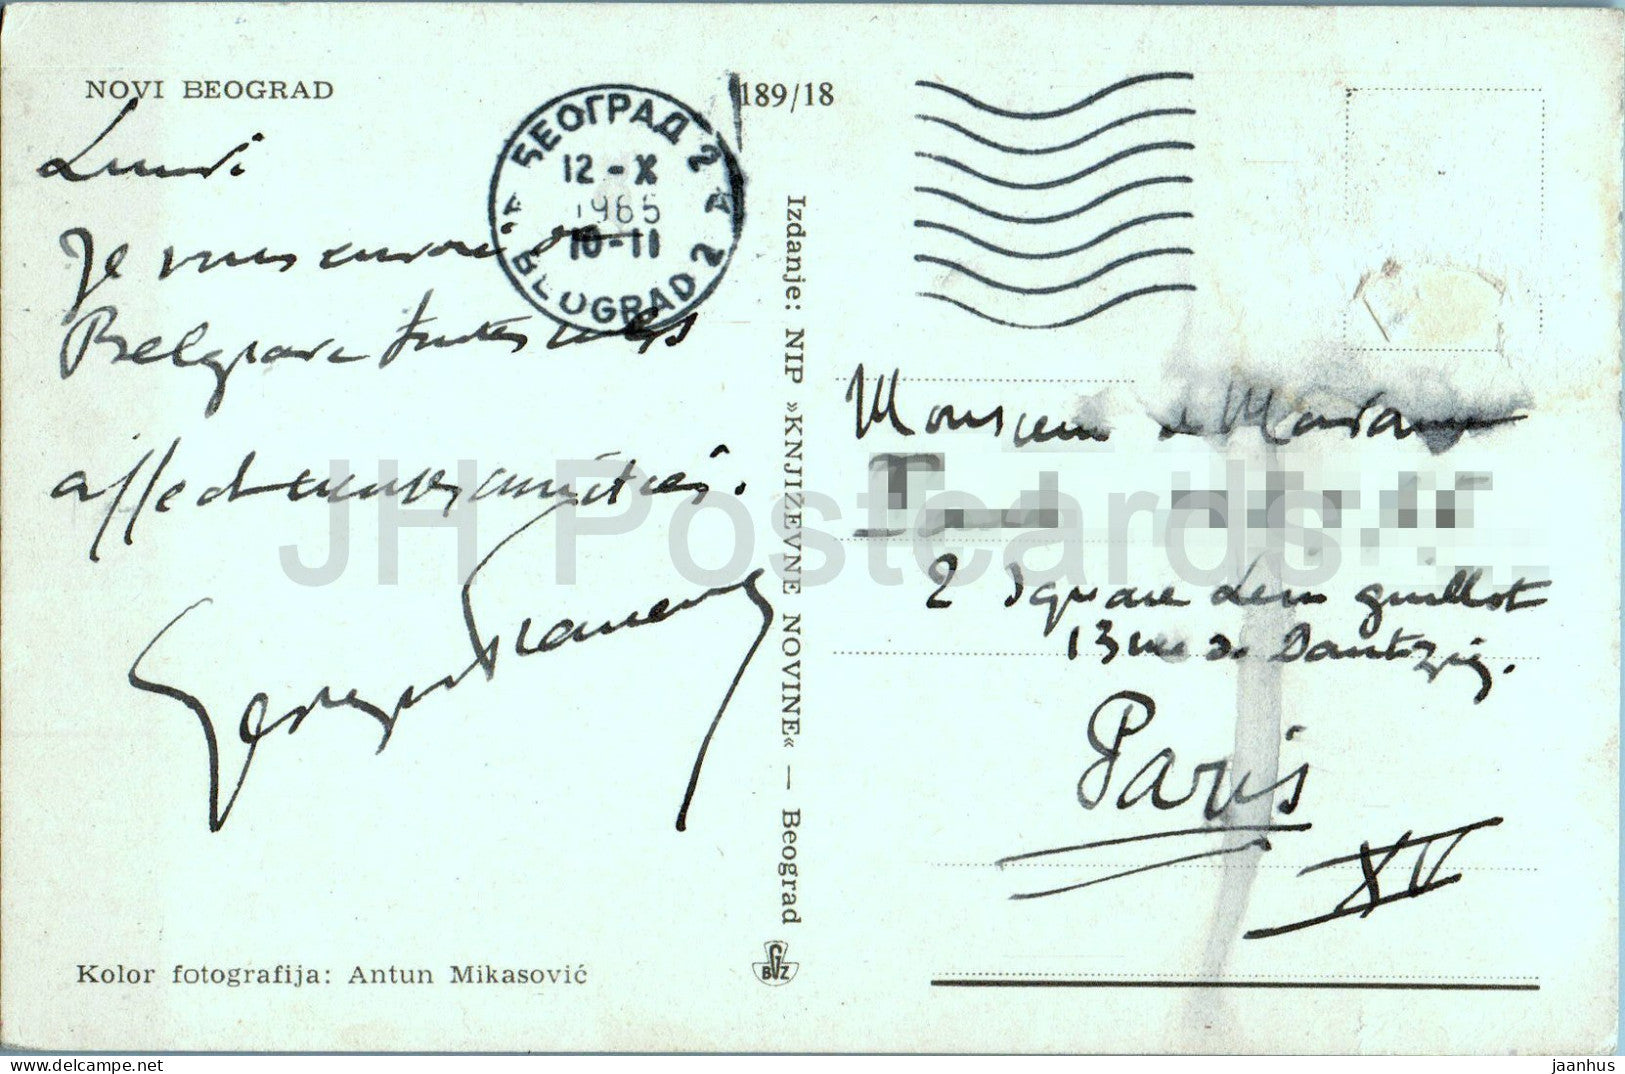 NOVI BEOGRAD
189/18
БЕОГРАД 2
12-X
1965
10-11
BEOGRAD 2
Lundi
Je vous envoie de
Belgrade toutes mes
affectueuses amitiés.
Izdanje: NIP »KNJIŽEVNE NOVINE« — Beograd
Monsieur et Madame
2 Square Léon Guillot
13 rue de Dantzig.
Paris
XV
Kolor fotografija: Antun Mikasović
BGZ
JH Postcards
https://www.delcampe.net
jaanhus